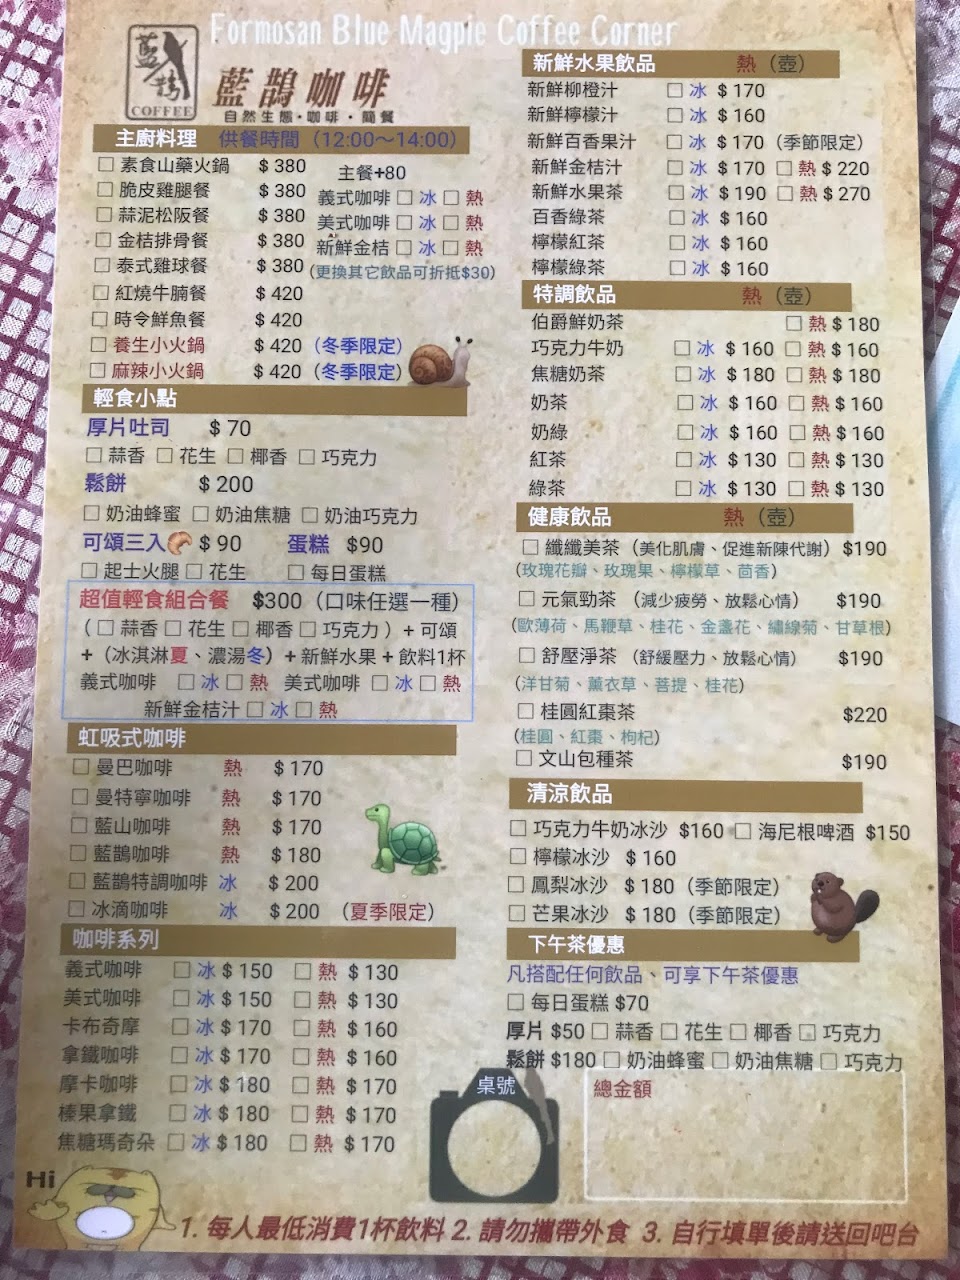 Formosan Blue Magpie Coffee Corner
藍鵲
COFFEE
藍鵲咖啡
自然生態•咖啡•簡餐
主廚料理 供餐時間（12:00～14:00）
□ 素食山藥火鍋 $ 380
□ 脆皮雞腿餐 $ 380
□ 蒜泥松阪餐 $ 380
□ 金桔排骨餐 $ 380
□ 泰式雞球餐 $ 380
□ 紅燒牛腩餐 $ 420
□ 時令鮮魚餐 $ 420
□ 養生小火鍋 $ 420（冬季限定）
□ 麻辣小火鍋 $ 420（冬季限定）
主餐+80
義式咖啡 □ 冰 □ 熱
美式咖啡 □ 冰 □ 熱
新鮮金桔 □ 冰 □ 熱
（更換其它飲品可折抵$30）
輕食小點
厚片吐司 $ 70
□ 蒜香 □ 花生 □ 椰香 □ 巧克力
鬆餅 $ 200
□ 奶油蜂蜜 □ 奶油焦糖 □ 奶油巧克力
可頌三入 $ 90 蛋糕 $90
□ 起士火腿 □ 花生 □ 每日蛋糕
超值輕食組合餐 $300（口味任選一種）
（□ 蒜香 □ 花生 □ 椰香 □ 巧克力）+ 可頌
+（冰淇淋夏、濃湯冬）+ 新鮮水果 + 飲料1杯
義式咖啡 □ 冰 □ 熱 美式咖啡 □ 冰 □ 熱
新鮮金桔汁 □ 冰 □ 熱
虹吸式咖啡
□ 曼巴咖啡 熱 $ 170
□ 曼特寧咖啡 熱 $ 170
□ 藍山咖啡 熱 $ 170
□ 藍鵲咖啡 熱 $ 180
□ 藍鵲特調咖啡 冰 $ 200
□ 冰滴咖啡 冰 $ 200 （夏季限定）
咖啡系列
義式咖啡 □ 冰 $ 150 □ 熱 $ 130
美式咖啡 □ 冰 $ 150 □ 熱 $ 130
卡布奇摩 □ 冰 $ 170 □ 熱 $ 160
拿鐵咖啡 □ 冰 $ 170 □ 熱 $ 160
摩卡咖啡 □ 冰 $ 180 □ 熱 $ 170
榛果拿鐵 □ 冰 $ 180 □ 熱 $ 170
焦糖瑪奇朵 □ 冰 $ 180 □ 熱 $ 170
新鮮水果飲品 熱（壺）
新鮮柳橙汁 □ 冰 $ 170
新鮮檸檬汁 □ 冰 $ 160
新鮮百香果汁 □ 冰 $ 170（季節限定）
新鮮金桔汁 □ 冰 $ 170 □ 熱 $ 220
新鮮水果茶 □ 冰 $ 190 □ 熱 $ 270
百香綠茶 □ 冰 $ 160
檸檬紅茶 □ 冰 $ 160
檸檬綠茶 □ 冰 $ 160
特調飲品 熱（壺）
伯爵鮮奶茶 □ 熱 $ 180
巧克力牛奶 □ 冰 $ 160 □ 熱 $ 160
焦糖奶茶 □ 冰 $ 180 □ 熱 $ 180
奶茶 □ 冰 $ 160 □ 熱 $ 160
奶綠 □ 冰 $ 160 □ 熱 $ 160
紅茶 □ 冰 $ 130 □ 熱 $ 130
綠茶 □ 冰 $ 130 □ 熱 $ 130
健康飲品 熱（壺）
□ 纖纖美茶（美化肌膚、促進新陳代謝） $190
（玫瑰花瓣、玫瑰果、檸檬草、茴香）
□ 元氣勁茶 （減少疲勞、放鬆心情） $190
（歐薄荷、馬鞭草、桂花、金盞花、繡線菊、甘草根）
□ 舒壓淨茶 （舒緩壓力、放鬆心情） $190
（洋甘菊、薰衣草、菩提、桂花）
□ 桂圓紅棗茶 $220
（桂圓、紅棗、枸杞）
□ 文山包種茶 $190
清涼飲品
□ 巧克力牛奶冰沙 $160 □ 海尼根啤酒 $150
□ 檸檬冰沙 $ 160
□ 鳳梨冰沙 $ 180（季節限定）
□ 芒果冰沙 $ 180（季節限定）
下午茶優惠
凡搭配任何飲品、可享下午茶優惠
□ 每日蛋糕 $70
厚片 $50 □ 蒜香 □ 花生 □ 椰香 □ 巧克力
鬆餅 $180 □ 奶油蜂蜜 □ 奶油焦糖 □ 巧克力
桌號
總金額
Hi
1. 每人最低消費1杯飲料 2. 請勿攜帶外食 3. 自行填單後請送回吧台